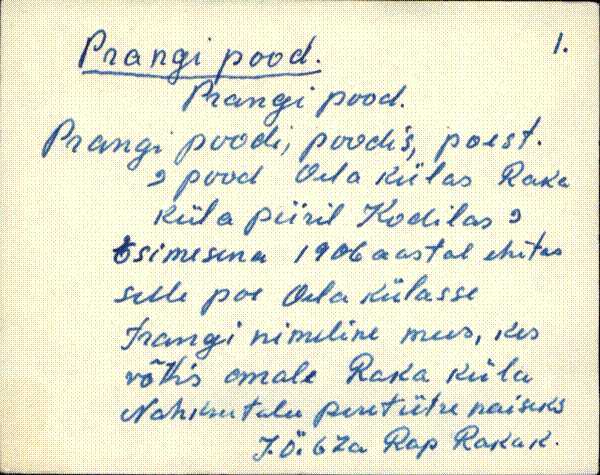 1.
Prangi pood.
Prangi pood.
Prangi poodi, poodis, poest.
pood Oela külas Raka
küla piiril Kodilas
Esimesena 1906 aastal ehitas
selle poe Oela külasse
Prangi nimeline mees, kes
võttis omale Raka küla
Nahkrutalu peretütre naiseks
J.Ö. 62a Rap Raka k.